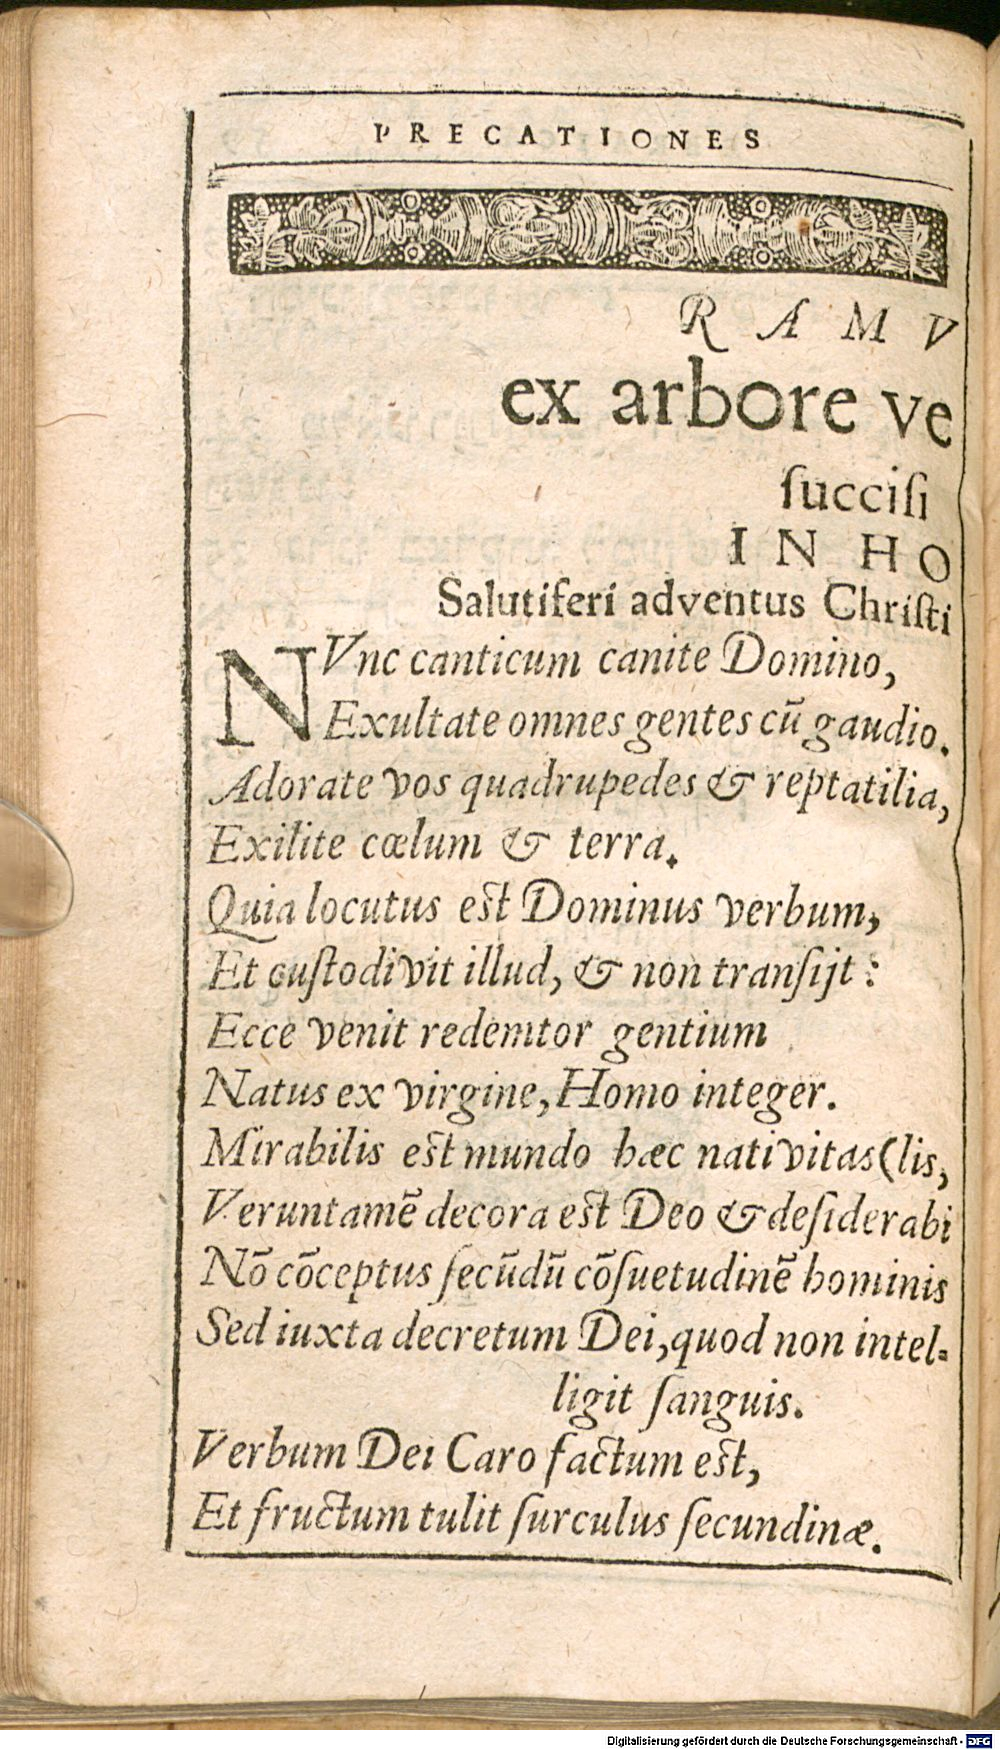 PRECATIONES
RAMV
ex arbore ve
ſucciſi
IN HO
Salutiferi adventus Chriſti
NVnc canticum canite Domino,
Exultate omnes gentes cū gaudio.
Adorate vos quadrupedes & reptatilia,
Exilite cœlum & terra.
Quia locutus eſt Dominus verbum,
Et cuſtodivit illud, & non tranſijt:
Ecce venit redemtor gentium
Natus ex virgine, Homo integer.
Mirabilis eſt mundo hæc nativitas (lis,
Veruntamē decora eſt Deo & deſiderabi
Nō cōceptus ſecūdū cōſuetudinē hominis
Sed iuxta decretum Dei, quod non intel-
ligit ſanguis.
Verbum Dei Caro factum eſt,
Et fructum tulit ſurculus ſecundinæ.
Digitalisierung gefördert durch die Deutsche Forschungsgemeinschaft - DFG